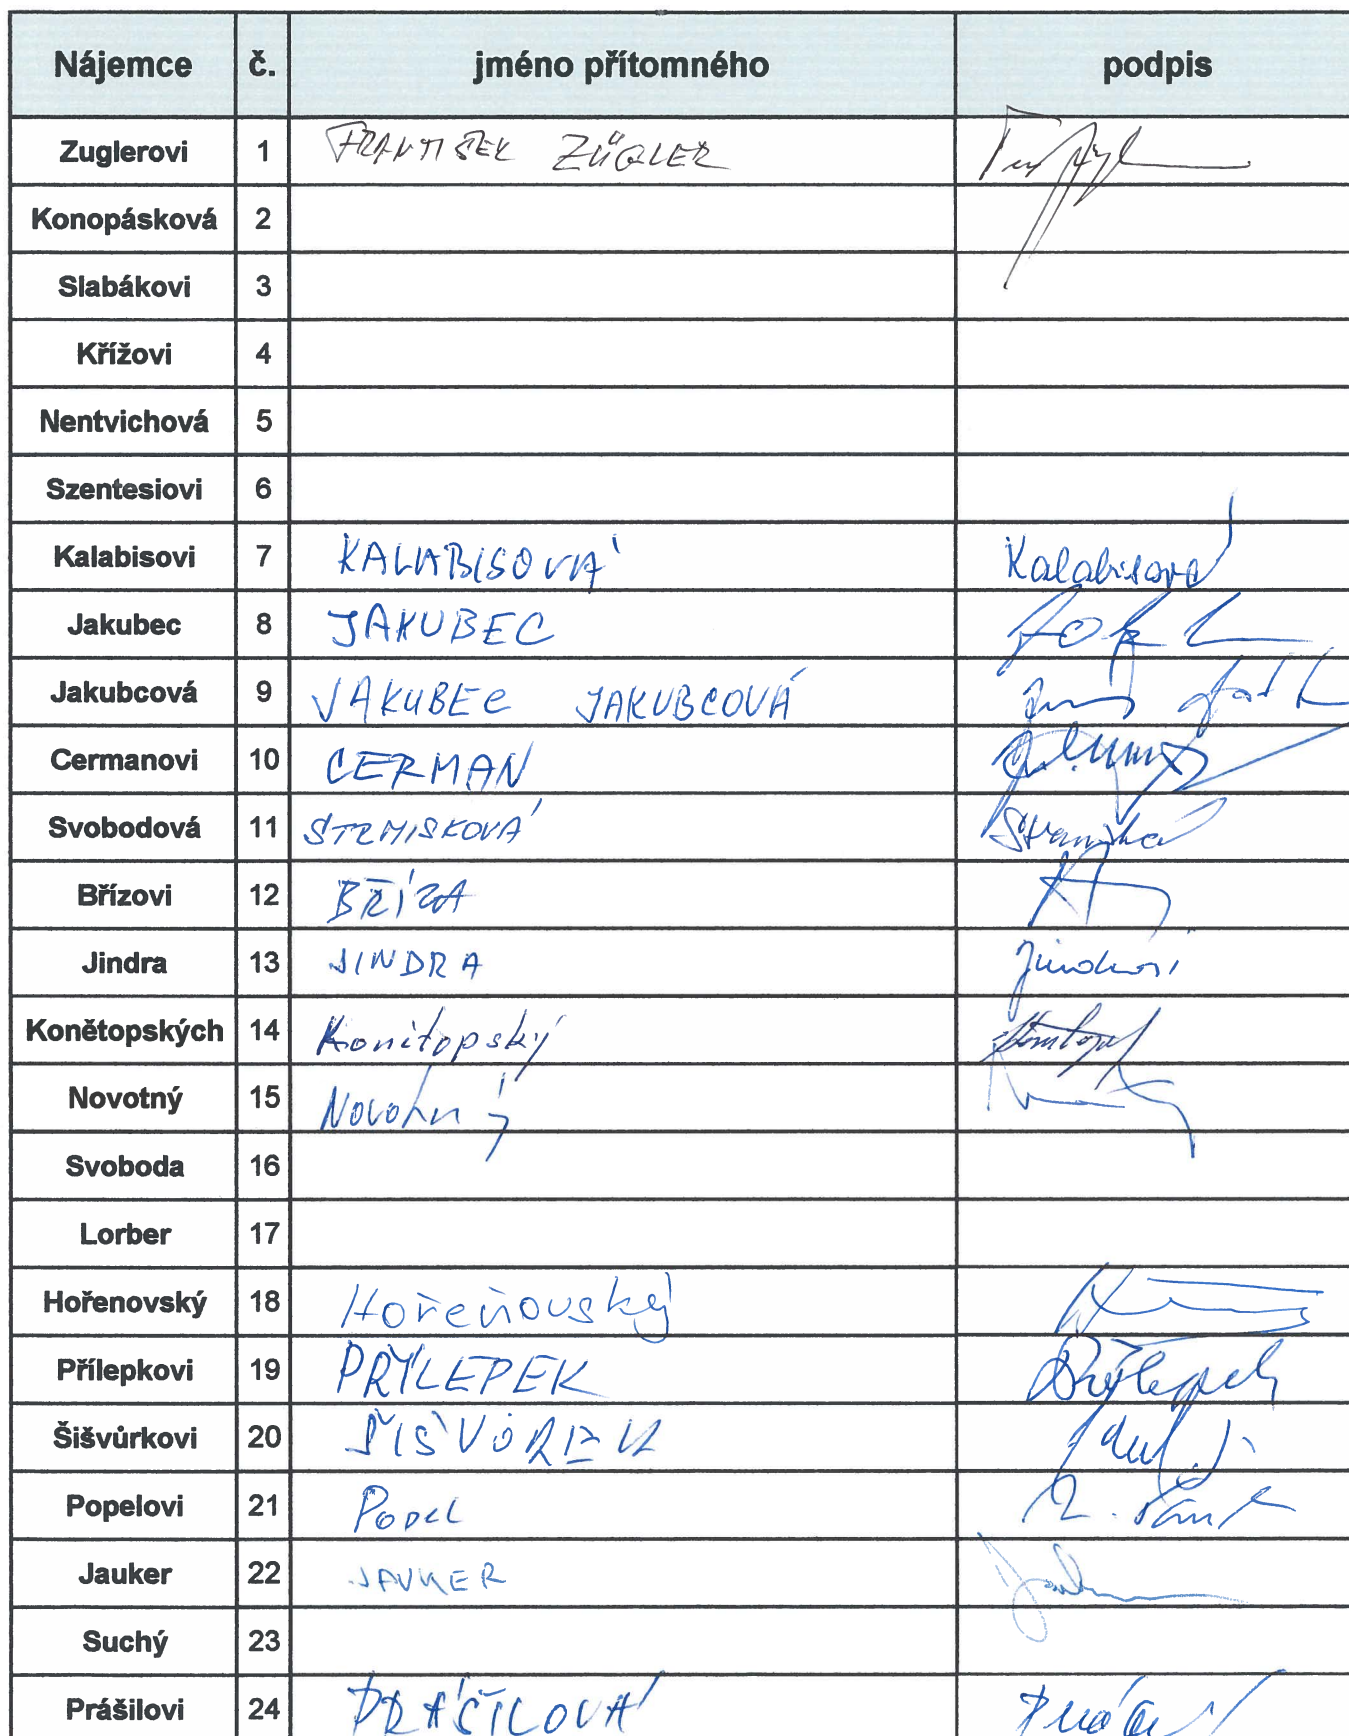 Nájemce č. jméno přítomného podpis
Zuglerovi 1 FRANTIŠEK ZÜGLER
Konopásková 2
Slabákovi 3
Křížovi 4
Nentvichová 5
Szentesiovi 6
Kalabisovi 7 KALABISOVÁ Kalabisová
Jakubec 8 JAKUBEC
Jakubcová 9 JAKUBEC JAKUBCOVÁ
Cermanovi 10 CERMAN
Svobodová 11 STRMISKOVÁ
Břízovi 12 BŘÍZA
Jindra 13 JINDRA
Konětopských 14 Konětopský
Novotný 15 Novotný
Svoboda 16
Lorber 17
Hořenovský 18 Hořeňovský
Přílepkovi 19 PŘÍLEPEK
Šišvůrkovi 20
Popelovi 21 POPEL
Jauker 22 JAUKER
Suchý 23
Prášilovi 24 PRÁŠILOVÁ